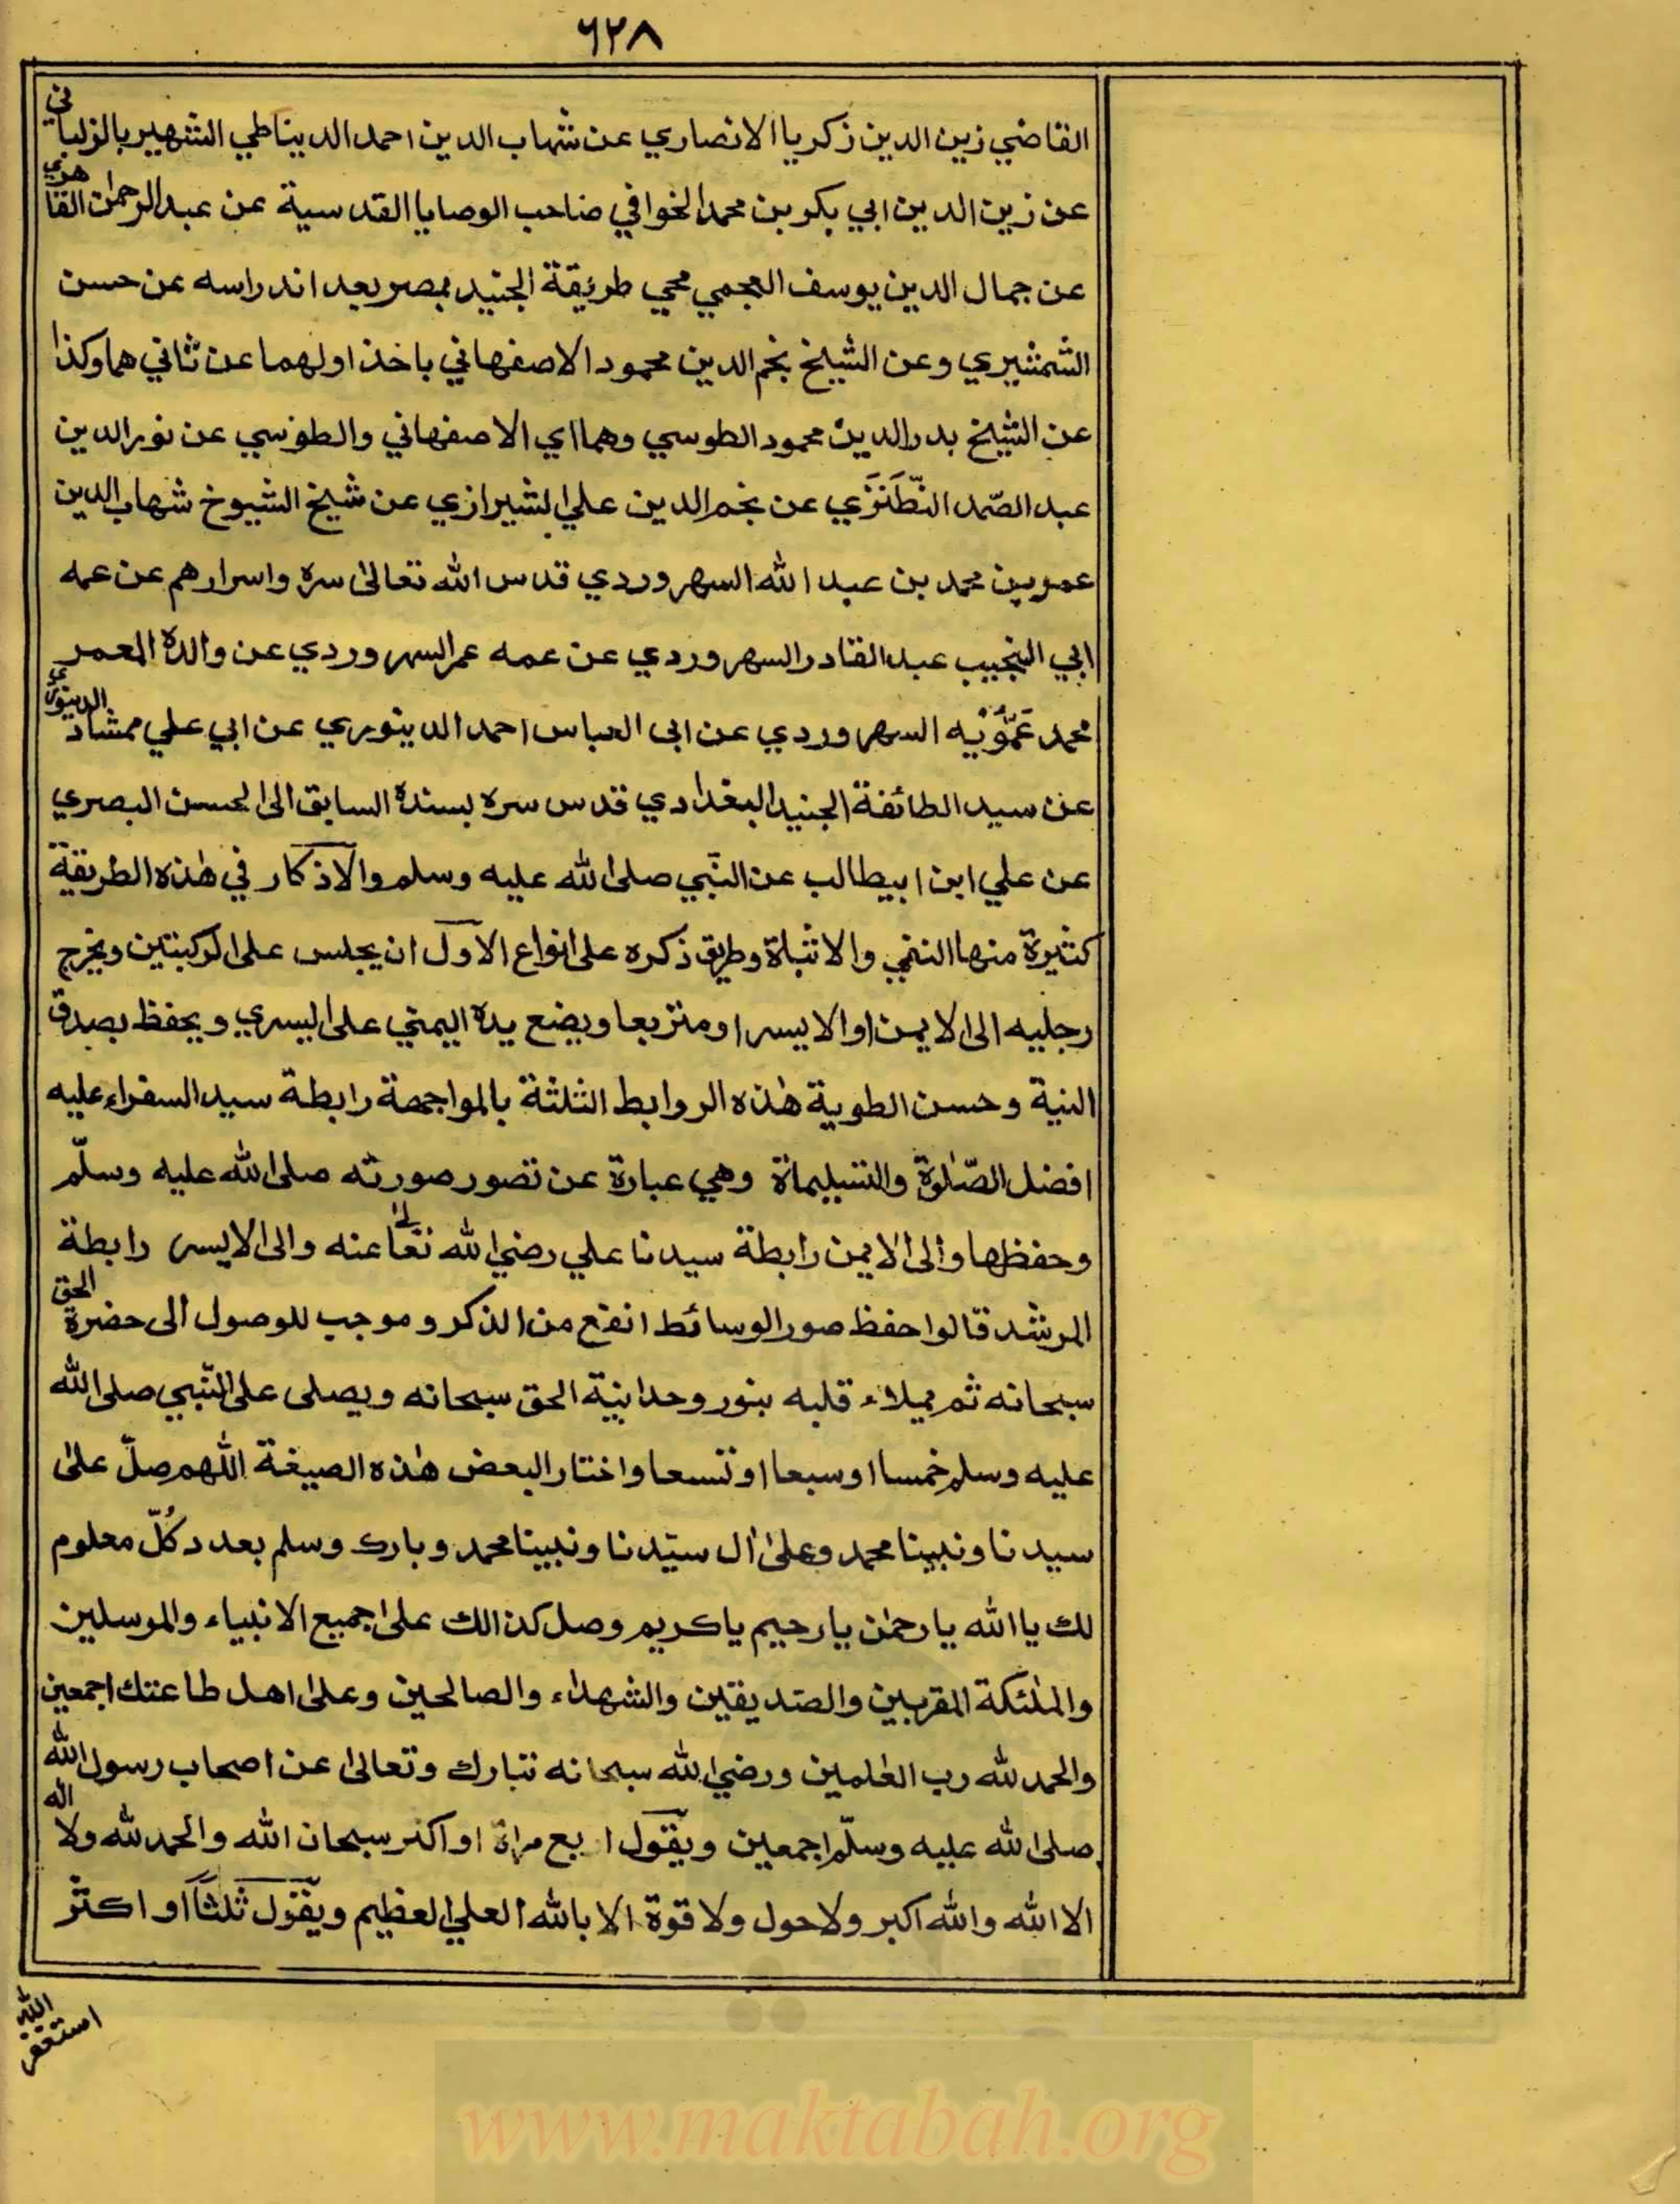 ٦٢٨
القاضي زين الدين زكريا الانصاري عن شهاب الدين احمد الديناطي الشهير بالزلباني
عن زين الدين ابي بكر بن محمد الخوافي صاحب الوصايا القدسية عن عبدالرحمٰن القاهري
عن جمال الدين يوسف العجمي محيي طريقة الجنيد بمصر بعد اندراسه عن حسن
الشمشيري وعن الشيخ نجم الدين محمود الاصفهاني باخذ اولهما عن ثاني هما وكذا
عن الشيخ بدر الدين محمود الطوسي وهما اي الاصفهاني والطوسي عن نور الدين
عبد الصّمد النّطَنَزَي عن نجم الدين علي الشيرازي عن شيخ الشيوخ شهاب الدين
عمر بن محمد بن عبد الله السهروردي قدس الله تعالىٰ سره واسرارهم عن عمه
ابي النجيب عبد القادر السهروردي عن عمه عمر السهروردي عن والده المعمر
محمد عَمُّوْيه السهروردي عن ابى العباس احمد الدينوري عن ابي علي ممشاد الدينوري
عن سيد الطائفة الجنيد البغدادي قدس سره بسنده السابق الى الحسن البصري
عن علي ابن ابيطالب عن النّبي صلى الله عليه وسلم والاذكار في هٰذه الطريقة
كثيرة منها النفي والاثباة وطريق ذكره على انواع الاول ان يجلس على الركبتين ويخرج
رجليه الى الايمن او الايسر او متربعا ويضع يده اليمني على اليسري ويحفظ بصدق
النية وحسن الطوية هٰذه الروابط الثلثة بالمواجهة رابطة سيد السفراء عليه
افضل الصّلٰوة والتسليماة وهي عبارة عن تصور صورته صلى الله عليه وسلّم
وحفظها والى الايمن رابطة سيدنا علي رضي الله تعالىٰ عنه والى الايسر رابطة
المرشد قالوا حفظ صور الوسائط انفع من الذكر و موجب للوصول الى حضرة الحق
سبحانه ثم يملاء قلبه بنور وحدانية الحق سبحانه ويصلى على النّبي صلى الله
عليه وسلم خمسا او سبعا او تسعا واختار البعض هٰذه الصيغة اللّٰهم صلّ علىٰ
سيدنا ونبينا محمد وعلىٰ اٰل سيّدنا ونبينا محمد وبارك وسلم بعدد كُلّ معلوم
لك يا الله يا رحمٰن يا رحيم يا كريم وصل كذالك على جميع الانبياء والموسلين
والملٰئكة المقربين والصّديقين والشهداء والصالحين وعلى اهل طاعتك اجمعين
والحمد لله رب العٰلمين ورضي الله سبحانه تبارك وتعالىٰ عن اصحاب رسول الله
صلى الله عليه وسلّم اجمعين ويقول اربع مراة او اكثر سبحان الله والحمد لله ولا اله
الا الله والله اكبر ولا حول ولا قوة الا بالله العلي العظيم ويقول ثلثاً او اكثر
استغفر الله
www.maktabah.org